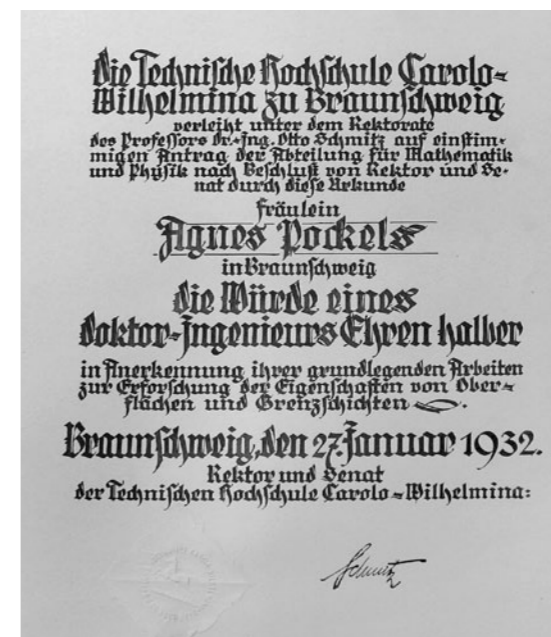 Die Technische Hochschule Carolo-
Wilhelmina zu Braunschweig
verleiht unter dem Rektorate
des Professors Dr.-Ing. Otto Schmitz auf einstim-
migen Antrag der Abteilung für Mathematik
und Physik nach Beschluß von Rektor und Se-
nat durch diese Urkunde
Fräulein
Agnes Pockels
in Braunschweig
die Würde eines
Doktor-Ingenieurs Ehren halber
in Anerkennung ihrer grundlegenden Arbeiten
zur Erforschung der Eigenschaften von Ober-
flächen und Grenzschichten.
Braunschweig, den 27. Januar 1932.
Rektor und Senat
der Technischen Hochschule Carolo-Wilhelmina:
Schmitz